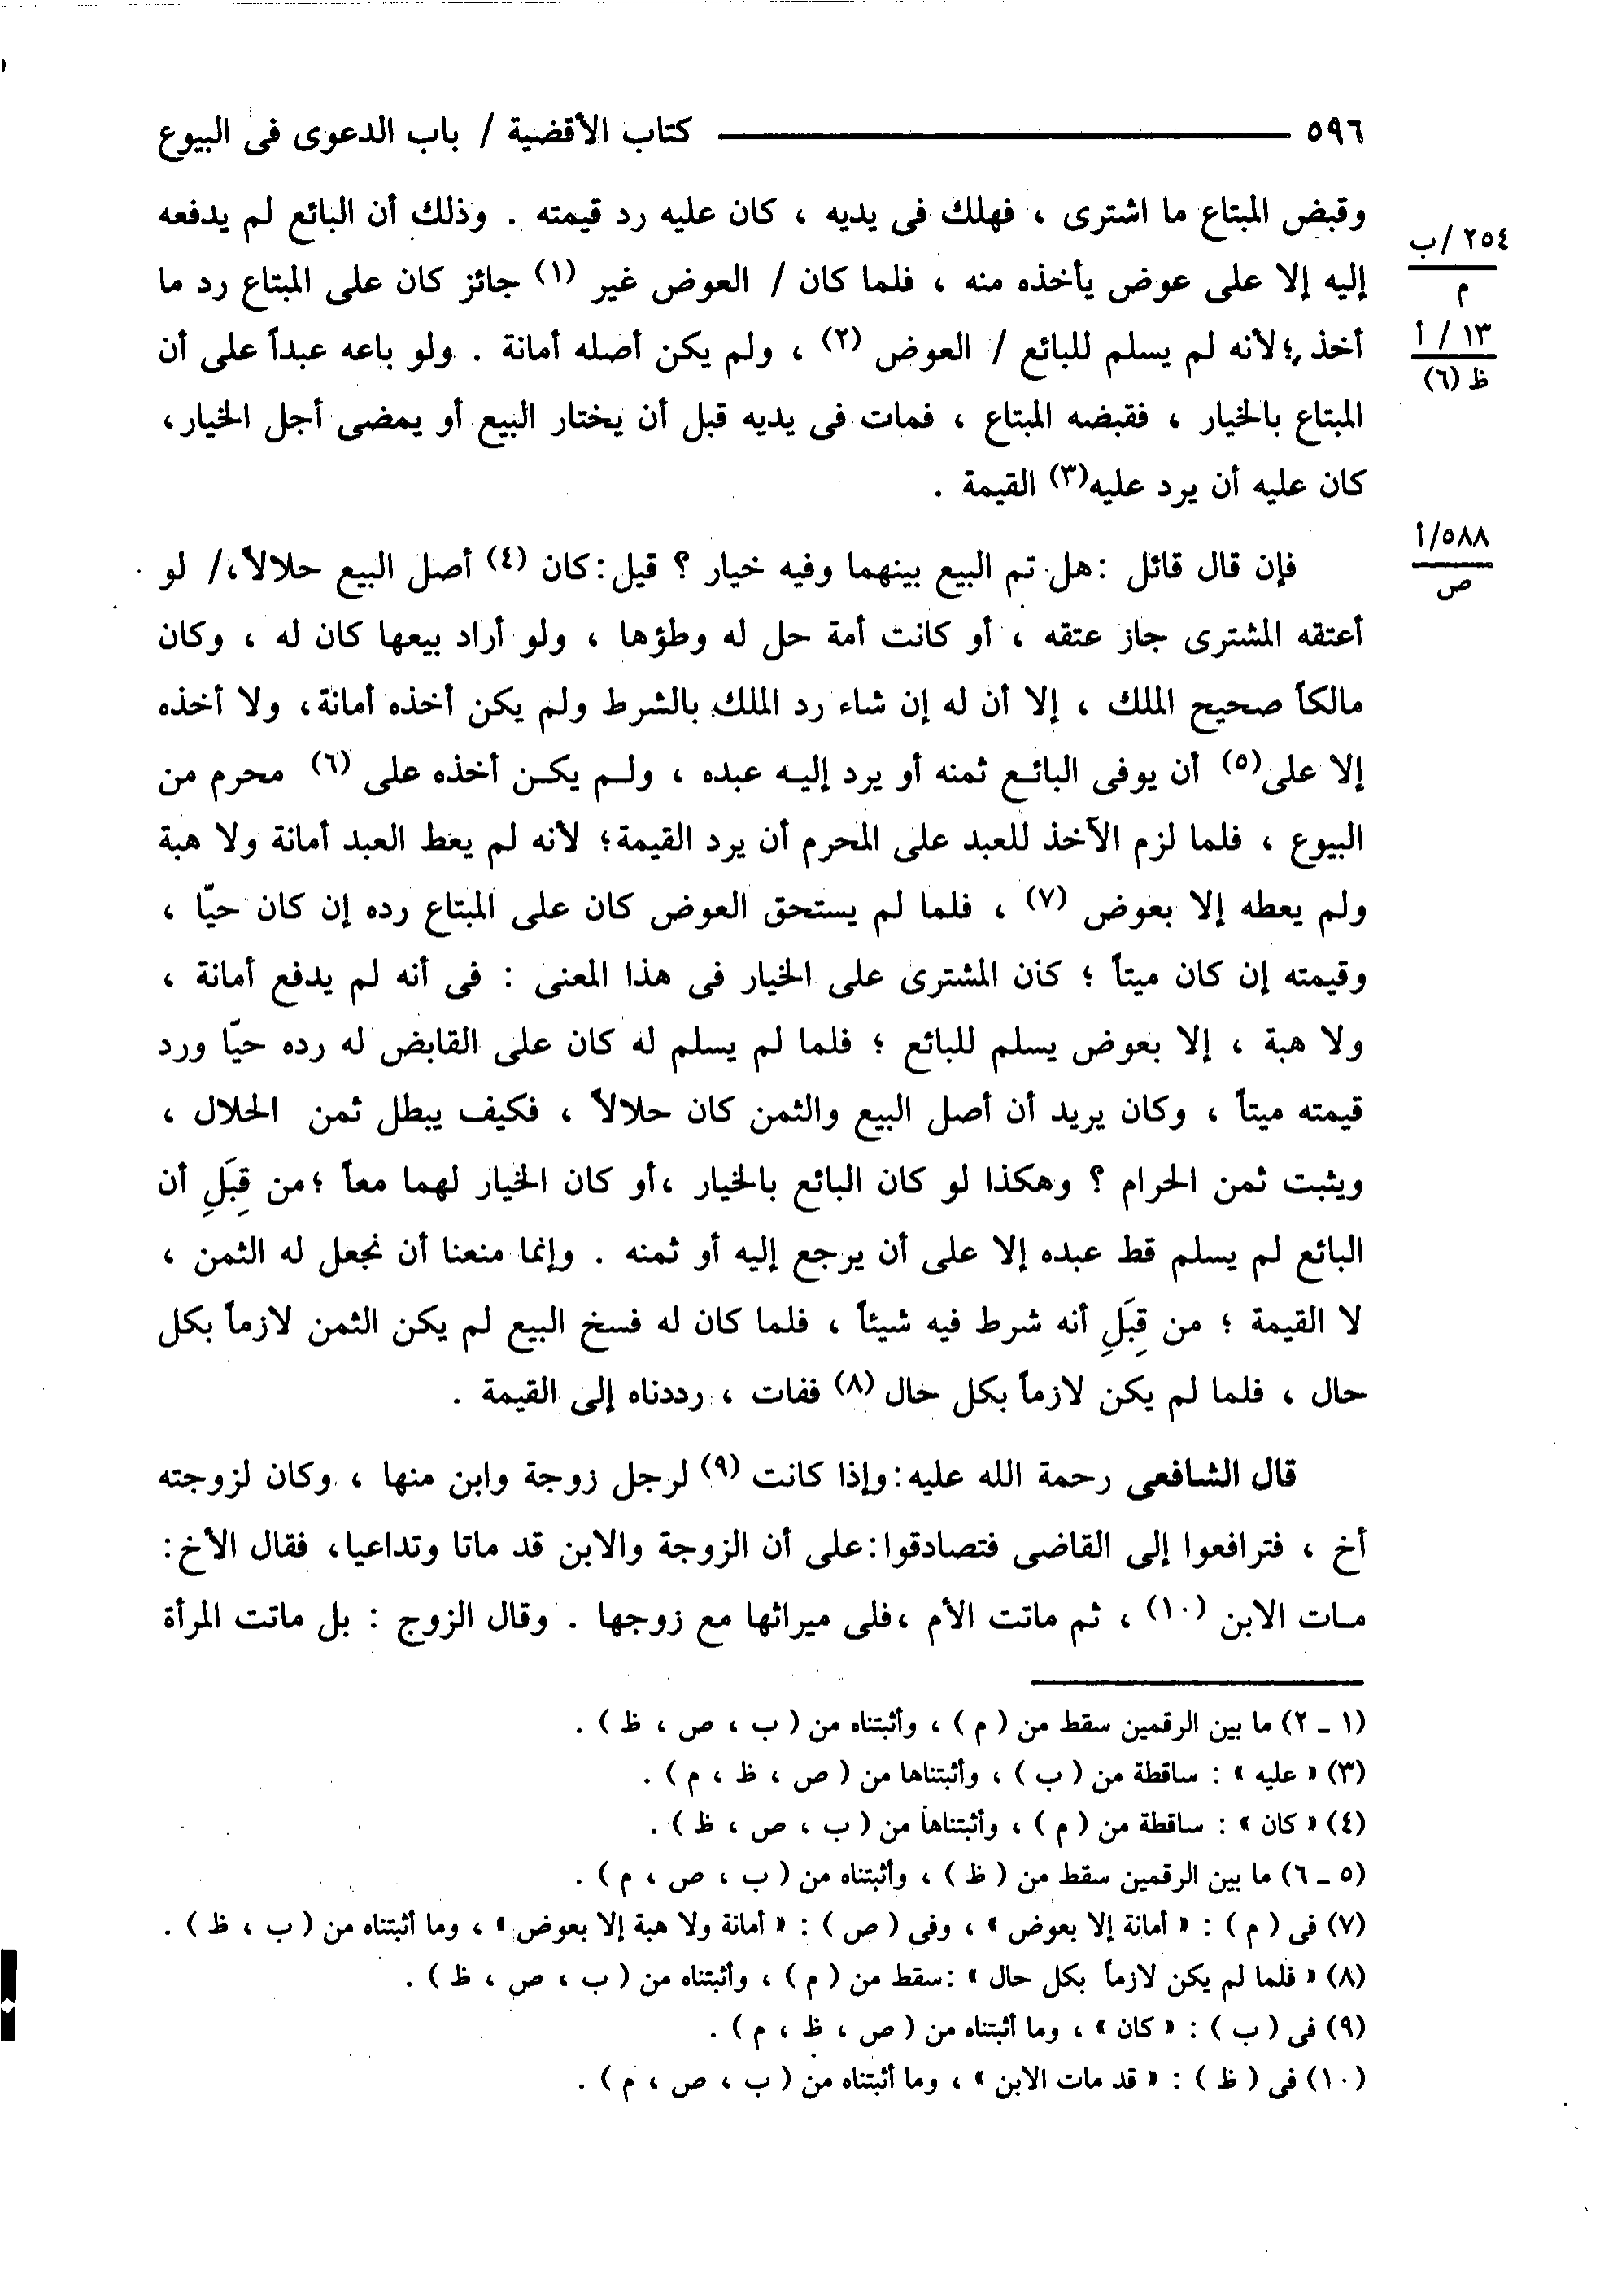 ٥٩٦ كتاب الأقضية / باب الدعوى فى البيوع
وقبض المبتاع ما اشترى ، فهلك فى يديه ، كان عليه رد قيمته . وذلك أن البائع لم يدفعه
٢٥٤/ب
م
إليه إلا على عوض يأخذه منه ، فلما كان / العوض غير (١) جائز كان على المبتاع رد ما
١٣ / أ
ظ (٦)
أخذ ؛ لأنه لم يسلم للبائع / العوض (٢) ، ولم يكن أصله أمانة . ولو باعه عبداً على أن
المبتاع بالخيار ، فقبضه المبتاع ، فمات فى يديه قبل أن يختار البيع أو يمضى أجل الخيار ،
كان عليه أن يرد عليه(٣) القيمة .
٥٨٨/أ
ص
فإن قال قائل : هل تم البيع بينهما وفيه خيار ؟ قيل : كان (٤) أصل البيع حلالاً ،/ لو
أعتقه المشترى جاز عتقه ، أو كانت أمة حل له وطؤها ، ولو أراد بيعها كان له ، وكان
مالكاً صحيح الملك ، إلا أن له إن شاء رد الملك بالشرط ولم يكن أخذه أمانة ، ولا أخذه
إلا على(٥) أن يوفى البائع ثمنه أو يرد إليه عبده ، ولم يكن أخذه على (٦) محرم من
البيوع ، فلما لزم الآخذ للعبد على المحرم أن يرد القيمة ؛ لأنه لم يعط العبد أمانة ولا هبة
ولم يعطه إلا بعوض (٧) ، فلما لم يستحق العوض كان على المبتاع رده إن كان حيّا ،
وقيمته إن كان ميتاً ؛ كان المشترى على الخيار فى هذا المعنى : فى أنه لم يدفع أمانة ،
ولا هبة ، إلا بعوض يسلم للبائع ؛ فلما لم يسلم له كان على القابض له رده حيّا ورد
قيمته ميتاً ، وكان يريد أن أصل البيع والثمن كان حلالاً ، فكيف يبطل ثمن الحلال ،
ويثبت ثمن الحرام ؟ وهكذا لو كان البائع بالخيار ، أو كان الخيار لهما معاً ؛ من قِبَلِ أن
البائع لم يسلم قط عبده إلا على أن يرجع إليه أو ثمنه . وإنما منعنا أن نجعل له الثمن ،
لا القيمة ؛ من قِبَلِ أنه شرط فيه شيئاً ، فلما كان له فسخ البيع لم يكن الثمن لازماً بكل
حال ، فلما لم يكن لازماً بكل حال (٨) ففات ، رددناه إلى القيمة .
قال الشافعى رحمة الله عليه : وإذا كانت (٩) لرجل زوجة وابن منها ، وكان لزوجته
أخ ، فترافعوا إلى القاضى فتصادقوا : على أن الزوجة والابن قد ماتا وتداعيا ، فقال الأخ :
مات الابن (١٠) ، ثم ماتت الأم ، فلى ميراثها مع زوجها . وقال الزوج : بل ماتت المرأة
(١ ـ ٢) ما بين الرقمين سقط من ( م ) ، وأثبتناه من ( ب ، ص ، ظ ) .
(٣) « عليه » : ساقطة من ( ب ) ، وأثبتناها من ( ص ، ظ ، م ) .
(٤) « كان » : ساقطة من ( م ) ، وأثبتناها من ( ب ، ص ، ظ ) .
(٥ ـ ٦) ما بين الرقمين سقط من ( ظ ) ، وأثبتناه من ( ب ، ص ، م ) .
(٧) فى ( م ) : « أمانة إلا بعوض » ، وفى ( ص ) : « أمانة ولا هبة إلا بعوض » ، وما أثبتناه من ( ب ، ظ ) .
(٨) « فلما لم يكن لازماً بكل حال » : سقط من ( م ) ، وأثبتناه من ( ب ، ص ، ظ ) .
(٩) فى ( ب ) : « كان » ، وما أثبتناه من ( ص ، ظ ، م ) .
(١٠) فى ( ظ ) : « قد مات الابن » ، وما أثبتناه من ( ب ، ص ، م ) .